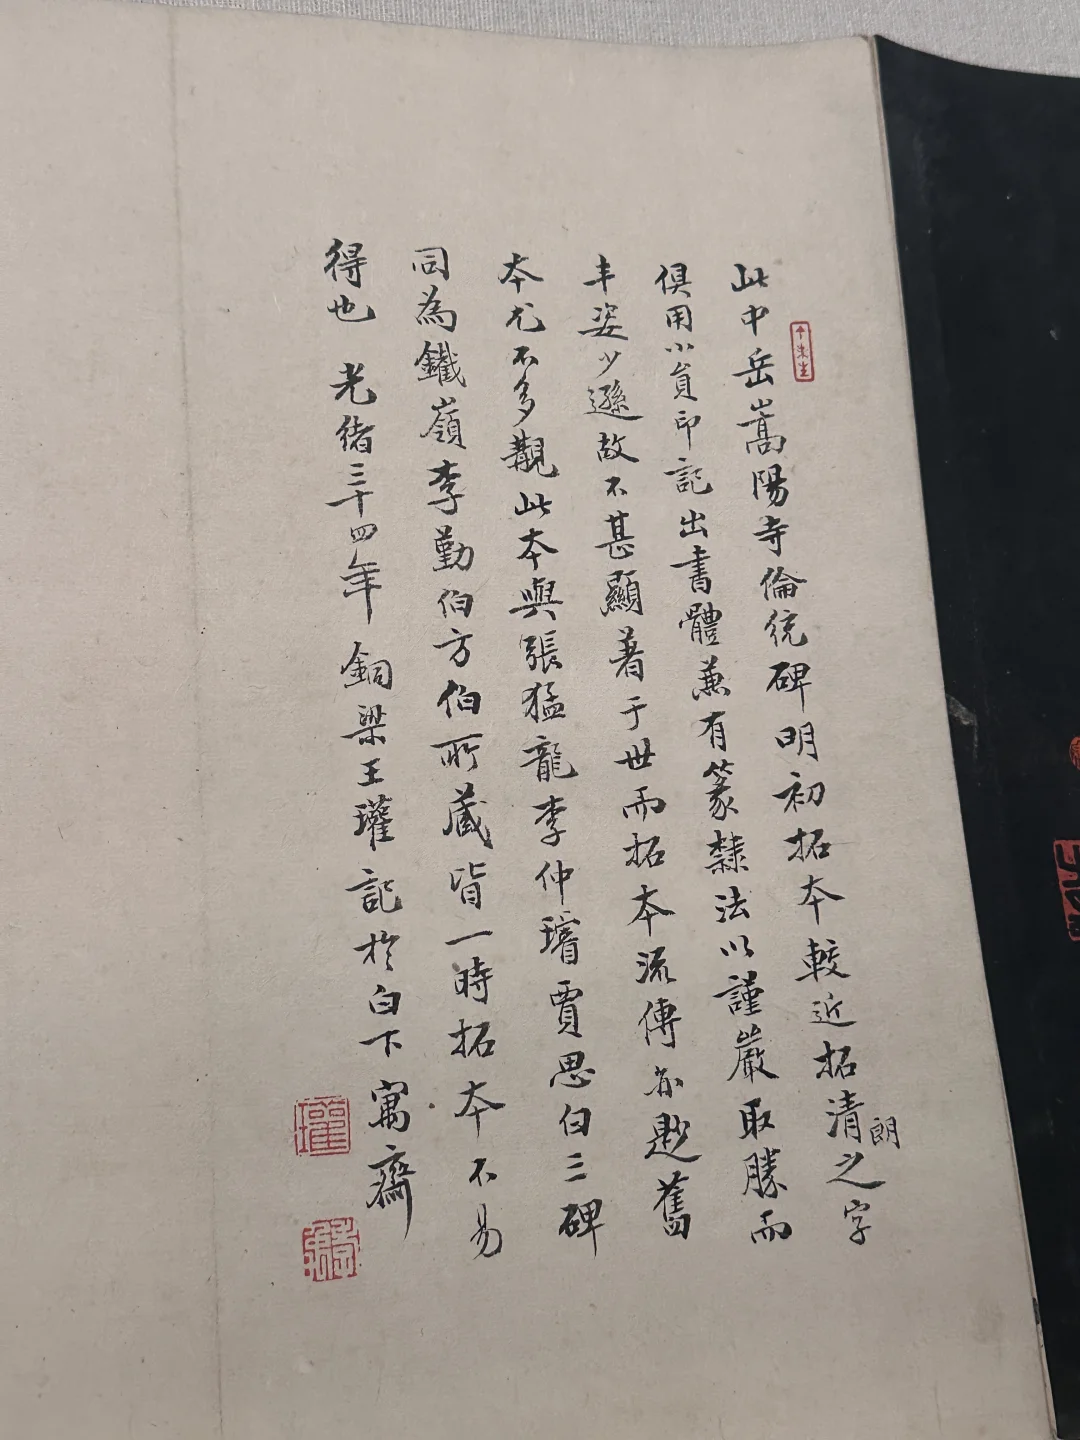 此中岳嵩陽寺倫統碑明初拓本較近拓清朗之字
俱用小員印記出書體兼有篆隸法以謹嚴取勝而
丰姿少遜故不甚顯著于世而拓本流傳亦尟舊
本尤不多觀此本與張猛龍李仲璿賈思伯三碑
同為鐵嶺李勤伯方伯所藏皆一時拓本不易
得也 光緒三十四年 銅梁王瓘記於白下寓齋